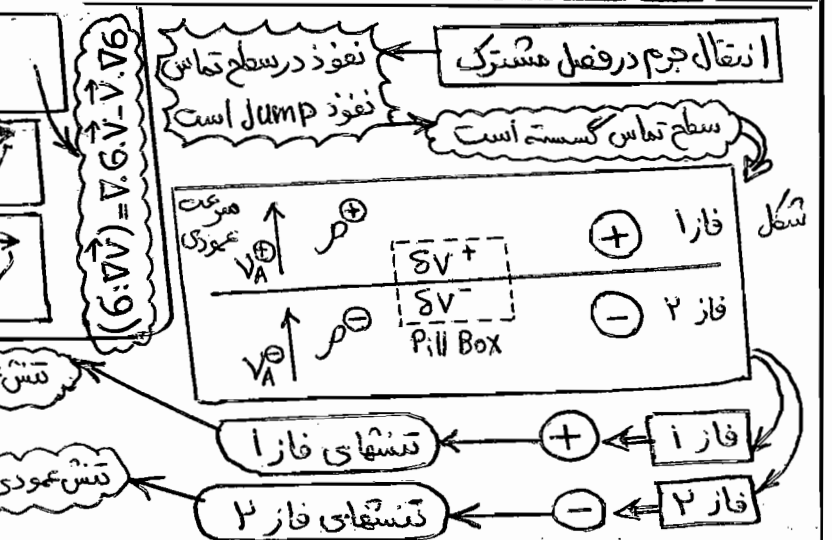 انتقال جرم در فصل مشترک
نفوذ در سطح تماس
نفوذ Jump است
سطح تماس گسسته است
شکل
سرعت عمودی
V_A^⊕ ρ^⊕ δV^+ ⊕ فاز ۱
V_A^⊖ ρ^⊖ δV^- ⊖ فاز ۲
Pill Box
فاز ۱ + تنشهای فاز ۱
فاز ۲ - تنشهای فاز ۲
تنش
تنش عمودی